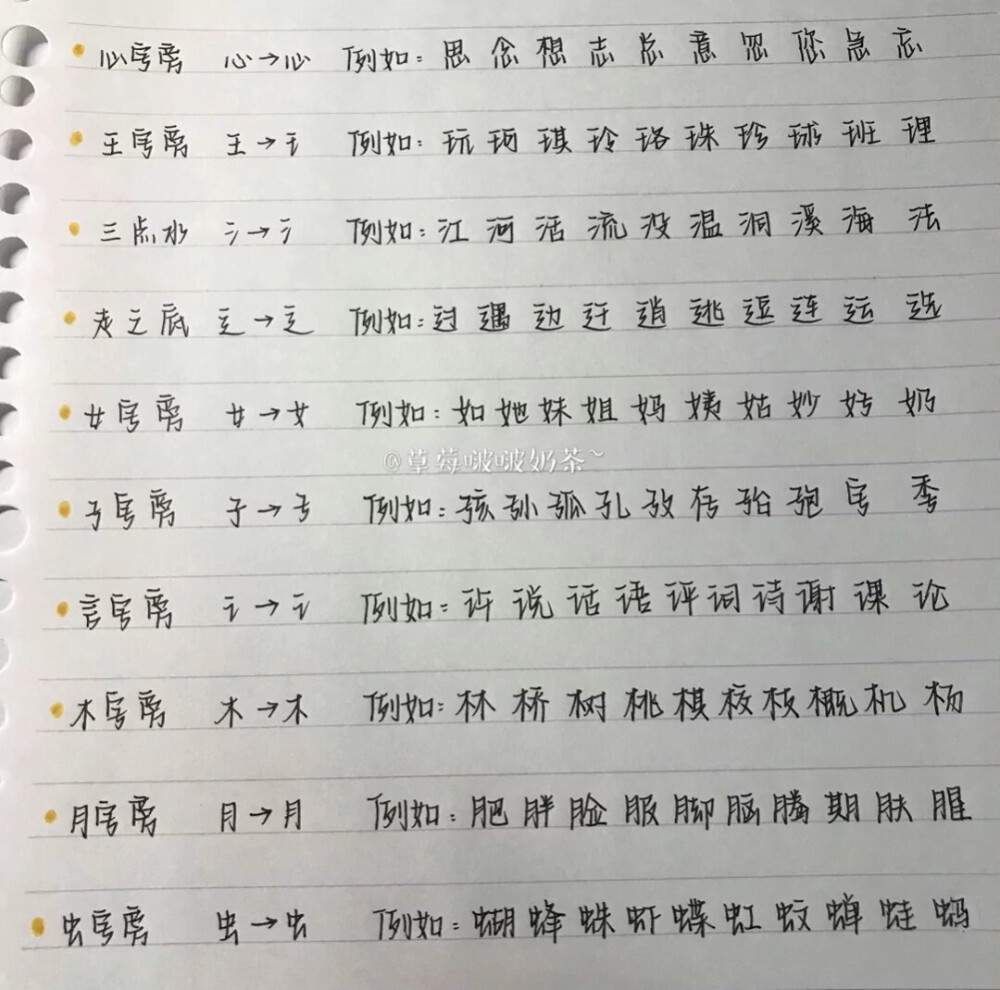 心字旁 心→心 例如：思 念 想 志 总 意 忽 您 急 忘
王字旁 王→王 例如：玩 珂 琪 玲 珞 珠 珍 球 班 理
三点水 氵→氵 例如：江 河 活 流 没 温 洞 溪 海 法
走之底 辶→辶 例如：过 遇 边 迁 逍 逃 逗 连 运 选
女字旁 女→女 例如：如 她 妹 姐 妈 姨 姑 妙 奶
@草莓啵啵奶茶~
子字旁 子→子 例如：孩 孙 孤 孔 孜 存 孢 字 季
言字旁 讠→讠 例如：许 说 话 语 评 词 诗 谢 课 论
木字旁 木→木 例如：林 桥 树 桃 棋 桉 概 机 杨
月字旁 月→月 例如：肥 胖 脸 服 脚 脑 腾 期 肤 腥
虫字旁 虫→虫 例如：蝴 蜂 蛛 虾 蝶 虹 蚊 蝉 蛙 蚂